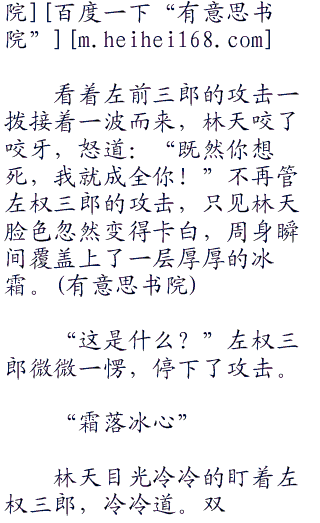 院][百度一下“有意思书
院”][m.heihei168.com]
看着左前三郎的攻击一
拨接着一波而来，林天咬了
咬牙，怒道：“既然你想
死，我就成全你！”不再管
左权三郎的攻击，只见林天
脸色忽然变得卡白，周身瞬
间覆盖上了一层厚厚的冰
霜。(有意思书院)
“这是什么？”左权三
郎微微一愣，停下了攻击。
“霜落冰心”
林天目光冷冷的盯着左
权三郎，冷冷道。双